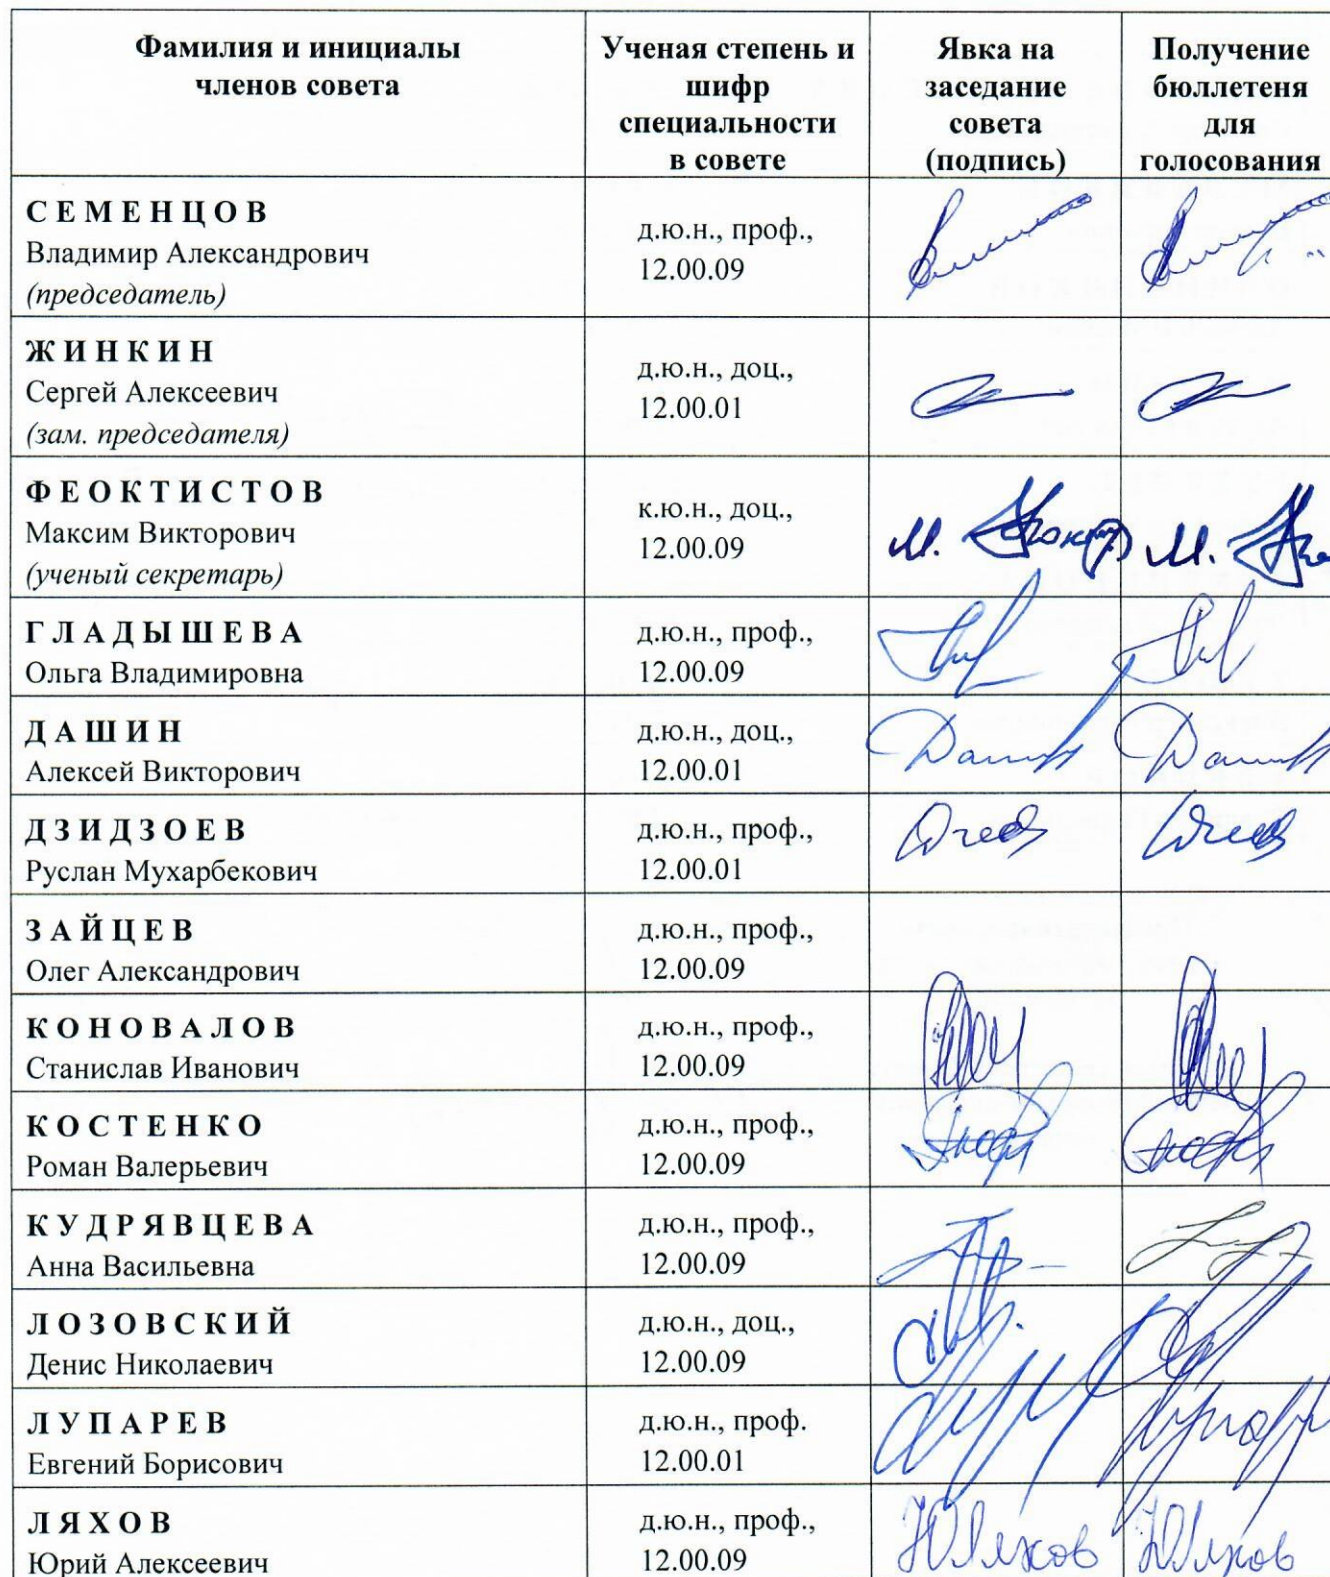 Фамилия и инициалы
членов совета
Ученая степень и
шифр
специальности
в совете
Явка на
заседание
совета
(подпись)
Получение
бюллетеня
для
голосования
С Е М Е Н Ц О В
Владимир Александрович
(председатель)
д.ю.н., проф.,
12.00.09
Ж И Н К И Н
Сергей Алексеевич
(зам. председателя)
д.ю.н., доц.,
12.00.01
Ф Е О К Т И С Т О В
Максим Викторович
(ученый секретарь)
к.ю.н., доц.,
12.00.09
М.
М.
Г Л А Д Ы Ш Е В А
Ольга Владимировна
д.ю.н., проф.,
12.00.09
Д А Ш И Н
Алексей Викторович
д.ю.н., доц.,
12.00.01
Д З И Д З О Е В
Руслан Мухарбекович
д.ю.н., проф.,
12.00.01
З А Й Ц Е В
Олег Александрович
д.ю.н., проф.,
12.00.09
К О Н О В А Л О В
Станислав Иванович
д.ю.н., проф.,
12.00.09
К О С Т Е Н К О
Роман Валерьевич
д.ю.н., проф.,
12.00.09
К У Д Р Я В Ц Е В А
Анна Васильевна
д.ю.н., проф.,
12.00.09
Л О З О В С К И Й
Денис Николаевич
д.ю.н., доц.,
12.00.09
Л У П А Р Е В
Евгений Борисович
д.ю.н., проф.
12.00.01
Л Я Х О В
Юрий Алексеевич
д.ю.н., проф.,
12.00.09
ЮЛяхов
ЮЛяхов